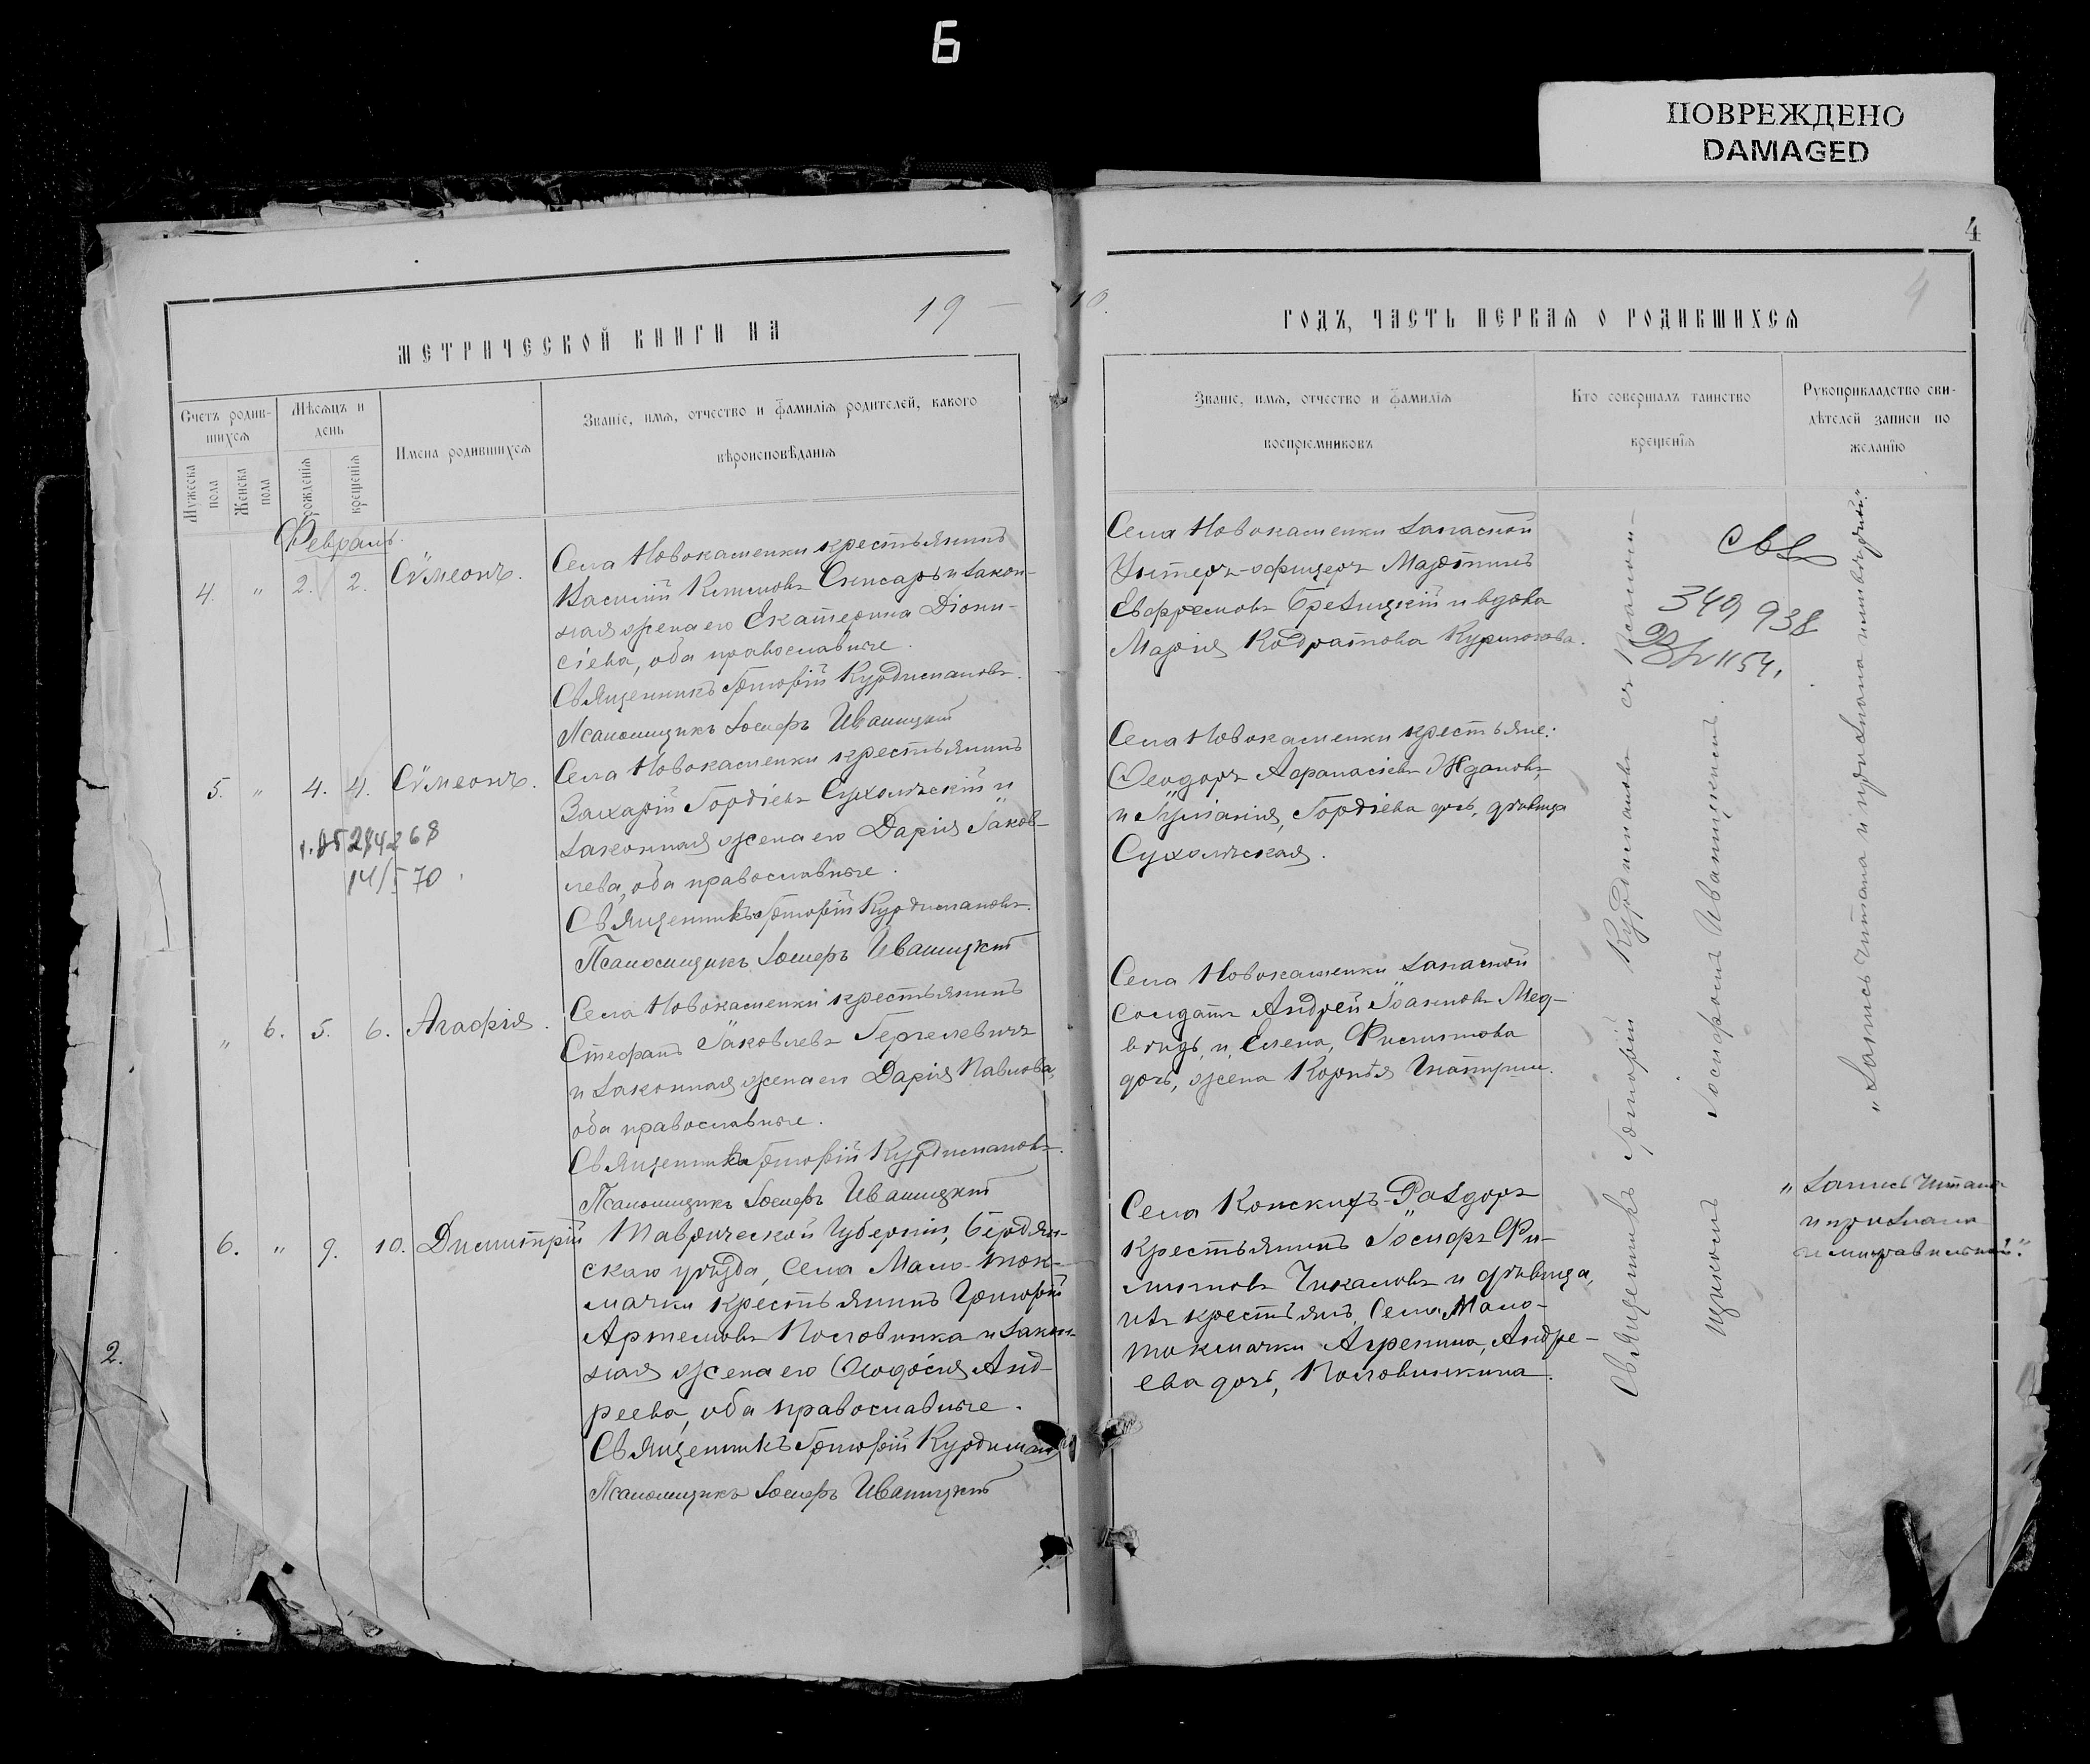 Б
ПОВРЕЖДЕНО
DAMAGED
4
4
МЕТРИЧЕСКОЙ КНИГИ НА 19
10.
ГОДЪ, ЧАСТЬ ПЕРВАЯ О РОДИВШИХСЯ
Счетъ родив-
шихся
Мужеска пола
Женска пола
Мѣсяцъ и
день
рожденія
крещенія
Имена родившихся
Званіе, имя, отчество и фамилія родителей, какого
вѣроисповѣданія
Званіе, имя, отчество и фамилія
воспріемниковъ
Кто совершалъ таинство
крещенія
Рукоприкладство сви-
дѣтелей записи по
желанію
Февраль.
4. " 2. 2. Сѵмеонъ.
Села Новокаменки крестьянинъ
Василій Слисарь и закон-
ная жена его Екатерина Діони-
сіева, оба православные.
Священникъ Григорій Курдимановъ.
Псаломщикъ Іосифъ Иваницкій
5. " 4. 4. Сѵмеонъ.
Села Новокаменки крестьянинъ
Захарій Гордіевъ и
законная жена его Дарія Іаков-
лева, оба православные.
Священникъ Григорій Курдимановъ.
Псаломщикъ Іосифъ Иваницкій
14/ 570
" 6. 5. 6. Агафія.
Села Новокаменки крестьянинъ
Стефанъ Іаковлевъ Гергелевичъ
и законная жена его Дарія Павлова,
оба православные.
Священникъ Григорій Курдимановъ.
Псаломщикъ Іосифъ Иваницкій
6. " 9. 10. Димитрій
Таврической губерніи, Бердян-
скаго уѣзда, села Мало-Ток-
мачки крестьянинъ Григорій
Артемовъ Половинка и закон-
ная жена его Ѳеодосія Анд-
реева, оба православные.
Священникъ Григорій Курдимановъ
Псаломщикъ Іосифъ Иваницкій
2.
Села Новокаменки запасной
Унтеръ-офицеръ Мартинъ
Евфремовъ Брезицкій и вдова
Марія Кодратова
Села Новокаменки крестьяне:
Ѳеодоръ Афанасіевъ Ждановъ,
и Гордіева дочь, дѣвица
Села Новокаменки запасной
солдатъ Андрей Іоанновъ Мед-
вѣдь, и, Елена, Филиппова
дочь, жена Корнѣя
Села Конскихъ-Раздоръ
крестьянинъ Іосифъ Фи-
липповъ Чикаловъ и дѣвица,
изъ крестьянъ, села Мало-
токмачки Агрепина, Андре-
ева дочь, Половинкина.
Священникъ Григорій Курдимановъ съ Псалом-
щикомъ Іосифомъ Иваницкимъ.
349 938
1154.
„Запись читана и признана
„Запись читана
и признана
неправильной."